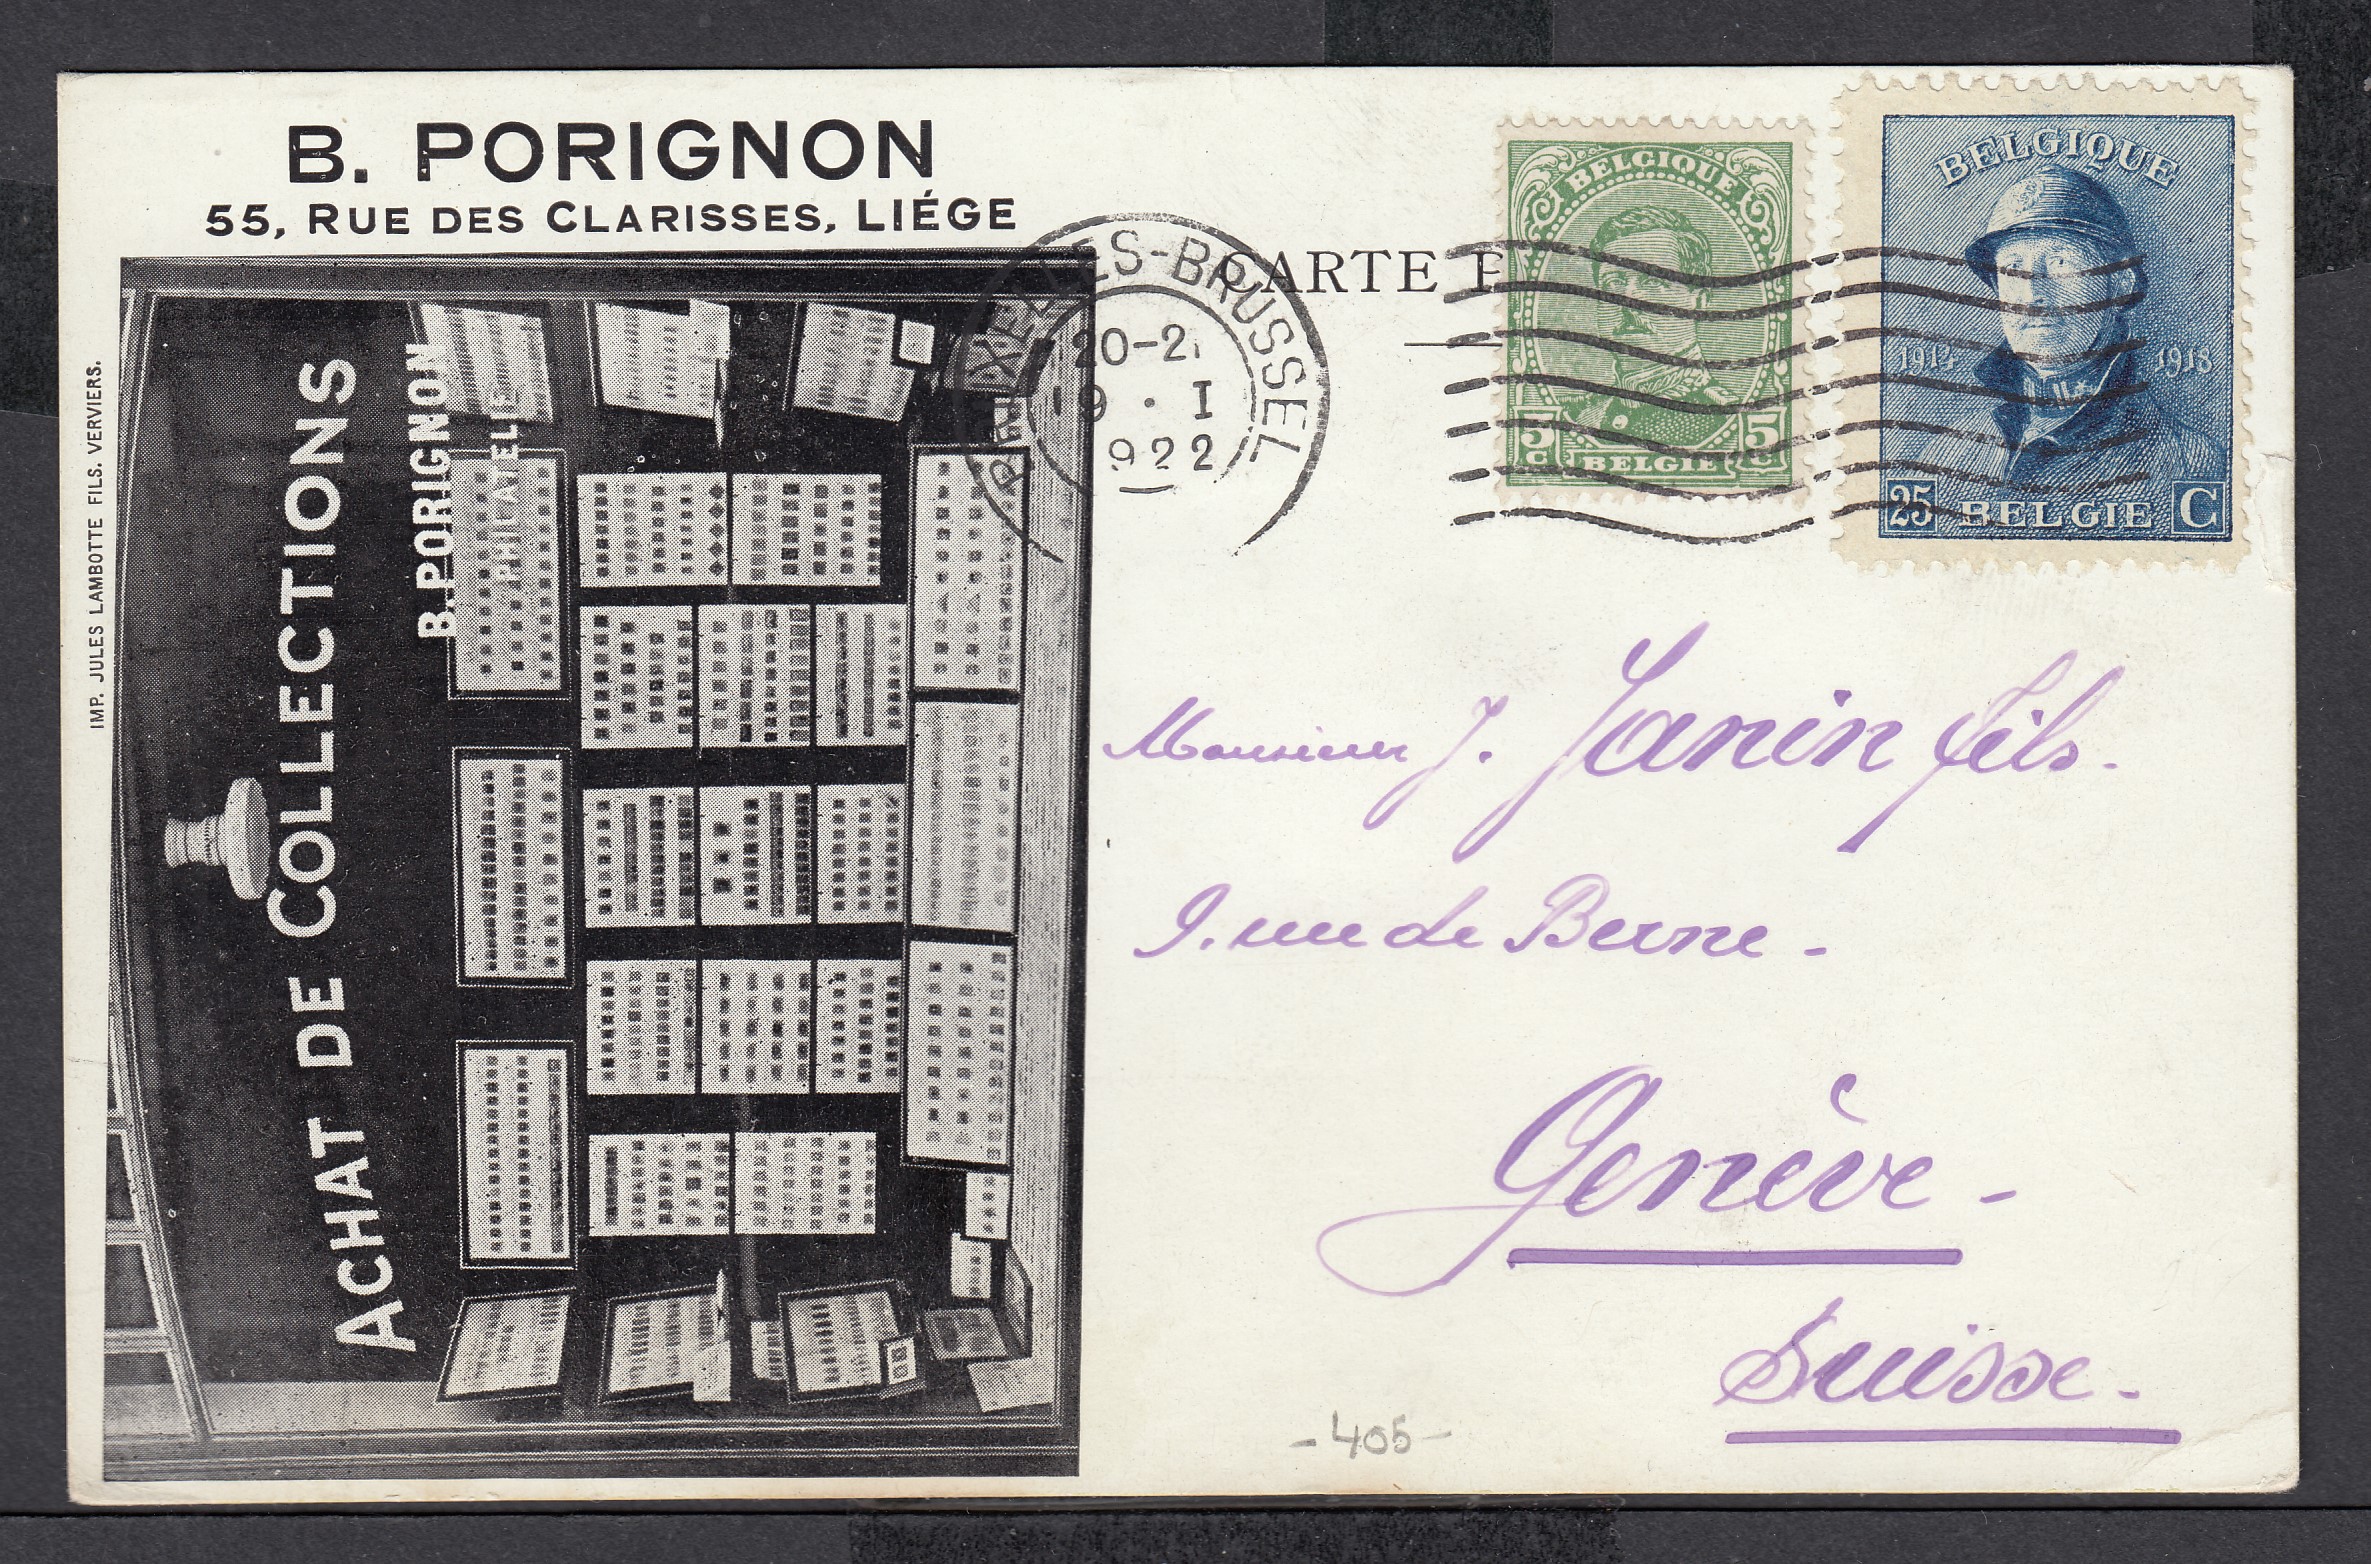 B. PORIGNON
55, RUE DES CLARISSES, LIÉGE
IMP. JULES LAMBOTTE FILS. VERVIERS.
ACHAT DE COLLECTIONS
B. PORIGNON
PHILATELIE
BRUXELLES-BRUSSEL
20-2
9 · I
1922
CARTE P
BELGIQUE
5 C BELGIE 5 C
BELGIQUE
1914 1918
25 BELGIE C
Monsieur J. Janin fils.
9. rue de Berne -
Genève -
Suisse -
- 405 -